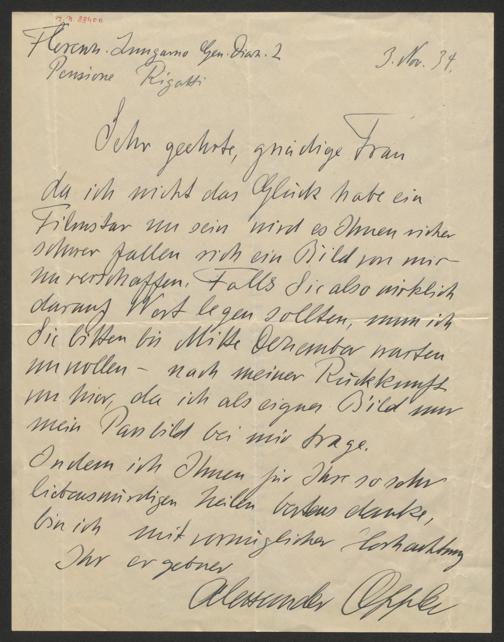 Florenz. Lungarno Gen. Diaz. 2
Pensione Rigatti
3. Nov. 34.
Sehr geehrte, gnädige Frau
da ich nicht das Glück habe ein
Filmstar zu sein wird es Ihnen sicher
schwer fallen sich ein Bild von mir
zu verschaffen. Falls Sie also wirklich
darauf Wert legen sollten, muss ich
Sie bitten bis Mitte Dezember warten
zu wollen – nach meiner Rückkunft
von hier, da ich als eignes Bild nur
mein Passbild bei mir trage.
Indem ich Ihnen für Ihre so sehr
liebenswürdigen Zeilen bestens danke,
bin ich mit vorzüglicher Hochachtung
Ihr ergebner
Alessander Oppler